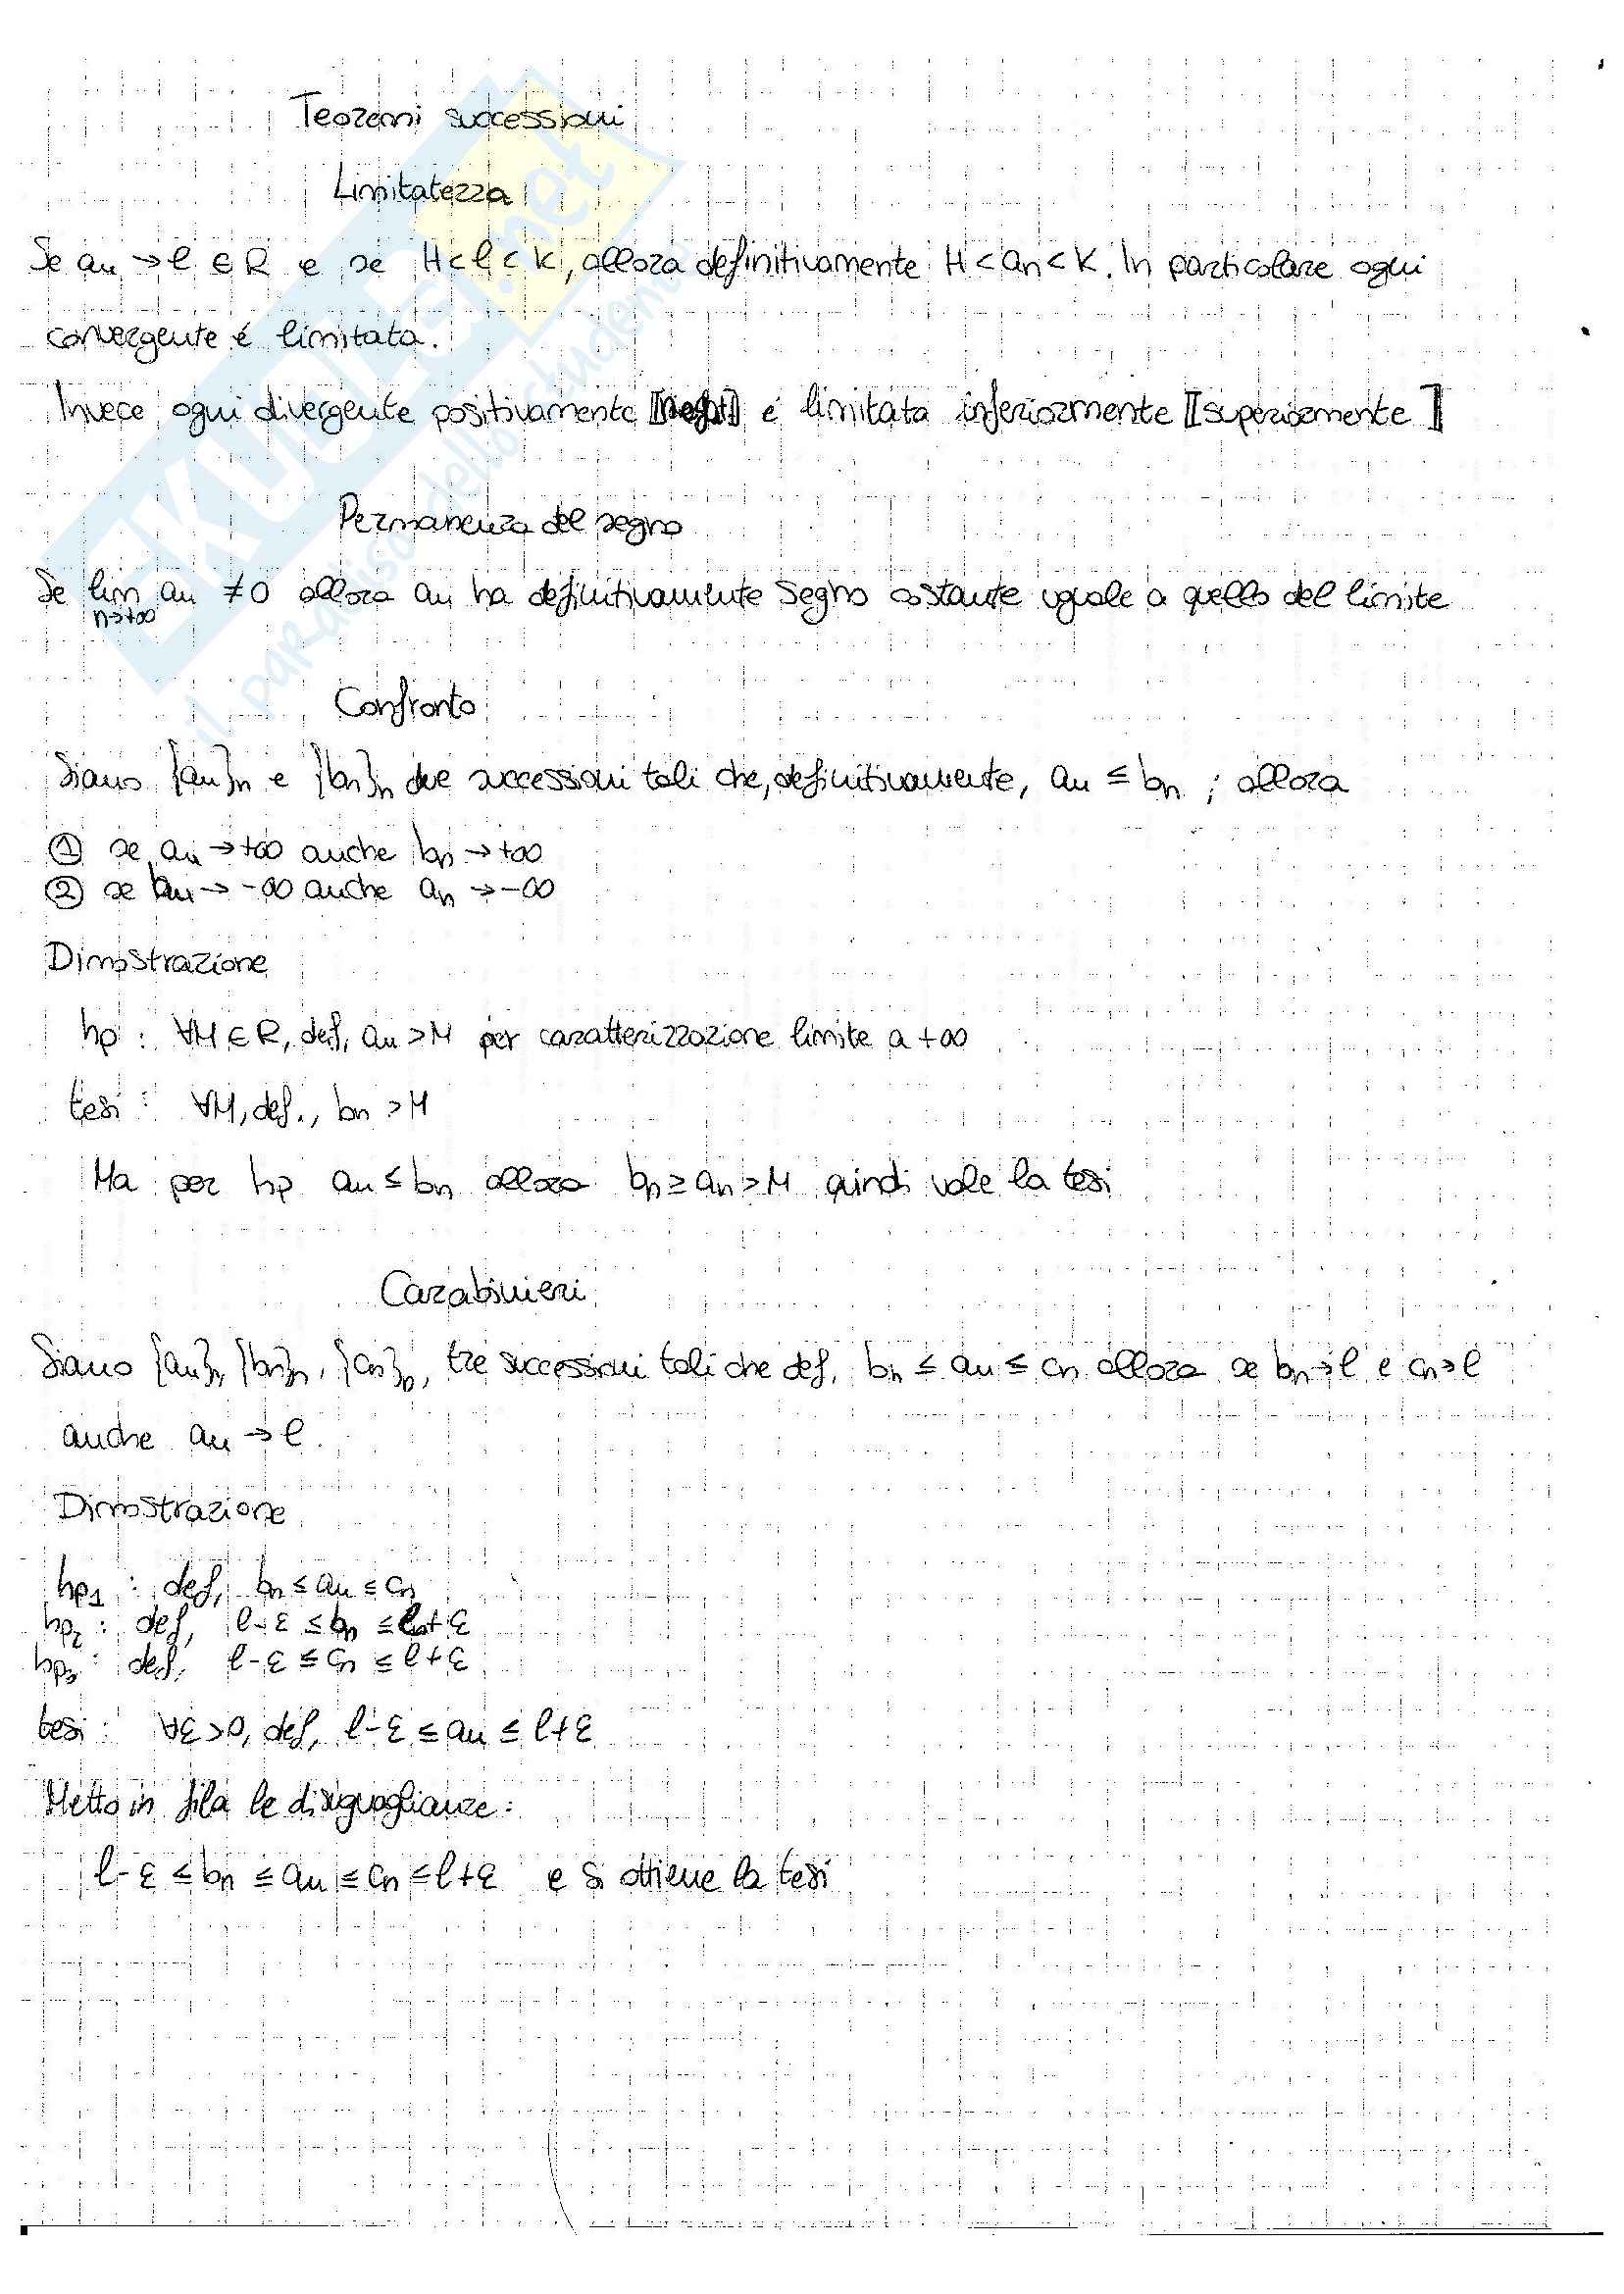 Teoremi successioni
Limitatezza
Se an → l ∈ R e se H < l < K, allora definitivamente H < an < K. In particolare ogni
convergente é limitata.
Invece ogni divergente positivamente [[negat]] é limitata inferiormente [[superiormente]]
Permanenza del segno
Se lim an ≠ 0 allora an ha definitivamente segno costante uguale a quello del limite
n→+∞
Confronto
Siano {an}n e {bn}n due successioni tali che, definitivamente, an ≤ bn ; allora
① se an → +∞ anche bn → +∞
② se bn → -∞ anche an → -∞
Dimostrazione
hp : ∀M ∈ R, def, an > M per caratterizzazione limite a +∞
tesi : ∀M, def., bn > M
Ma per hp an ≤ bn allora bn ≥ an > M quindi vale la tesi
Carabinieri
Siano {an}n {bn}n, {cn}n, tre successioni tali che def, bn ≤ an ≤ cn allora se bn → l e cn → l
anche an → l.
Dimostrazione
hp1 : def, bn ≤ an ≤ cn
hp2 : def, l-ε ≤ bn ≤ l+ε
hp3 : def, l-ε ≤ cn ≤ l+ε
tesi : ∀ε>0, def, l-ε ≤ an ≤ l+ε
Metto in fila le disuguaglianze:
l-ε ≤ bn ≤ an ≤ cn ≤ l+ε e si ottiene la tesi
SKUOLA.net
il paradiso dello studente